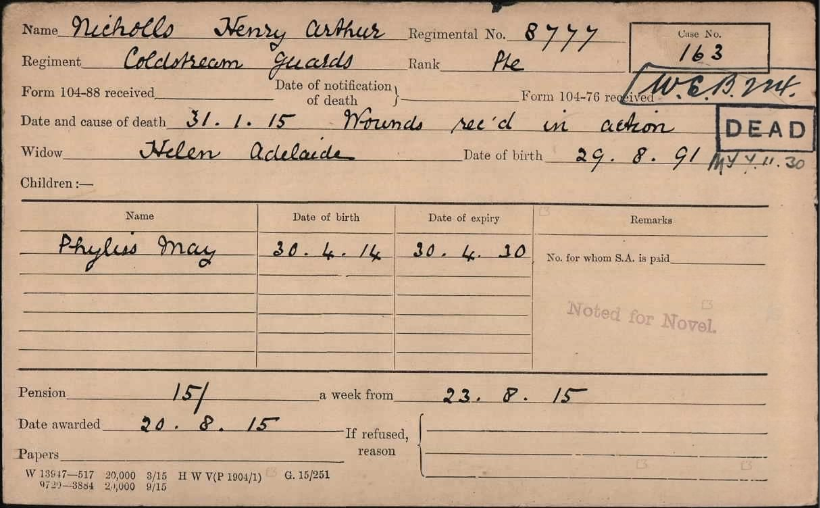 Name Nicholls Henry Arthur Regimental No. 8777 Case No.
163
Regiment Coldstream Guards Rank Pte
W.E.B.
Form 104-88 received Date of notification of death } Form 104-76 received
Date and cause of death 31.1.15 Wounds rec'd in action
DEAD
Widow Helen Adelaide Date of birth 29.8.91
11.30
Children:—
Name Date of birth Date of expiry Remarks
Phyliss May 30.4.14 30.4.30
No. for whom S.A. is paid
Noted for Novel.
Pension 15/ a week from 23.8.15
Date awarded 20.8.15 If refused, reason
Papers
W 13947—517 20,000 3/15 H W V(P 1904/1) G. 15/251
9729—3884 20,000 9/15